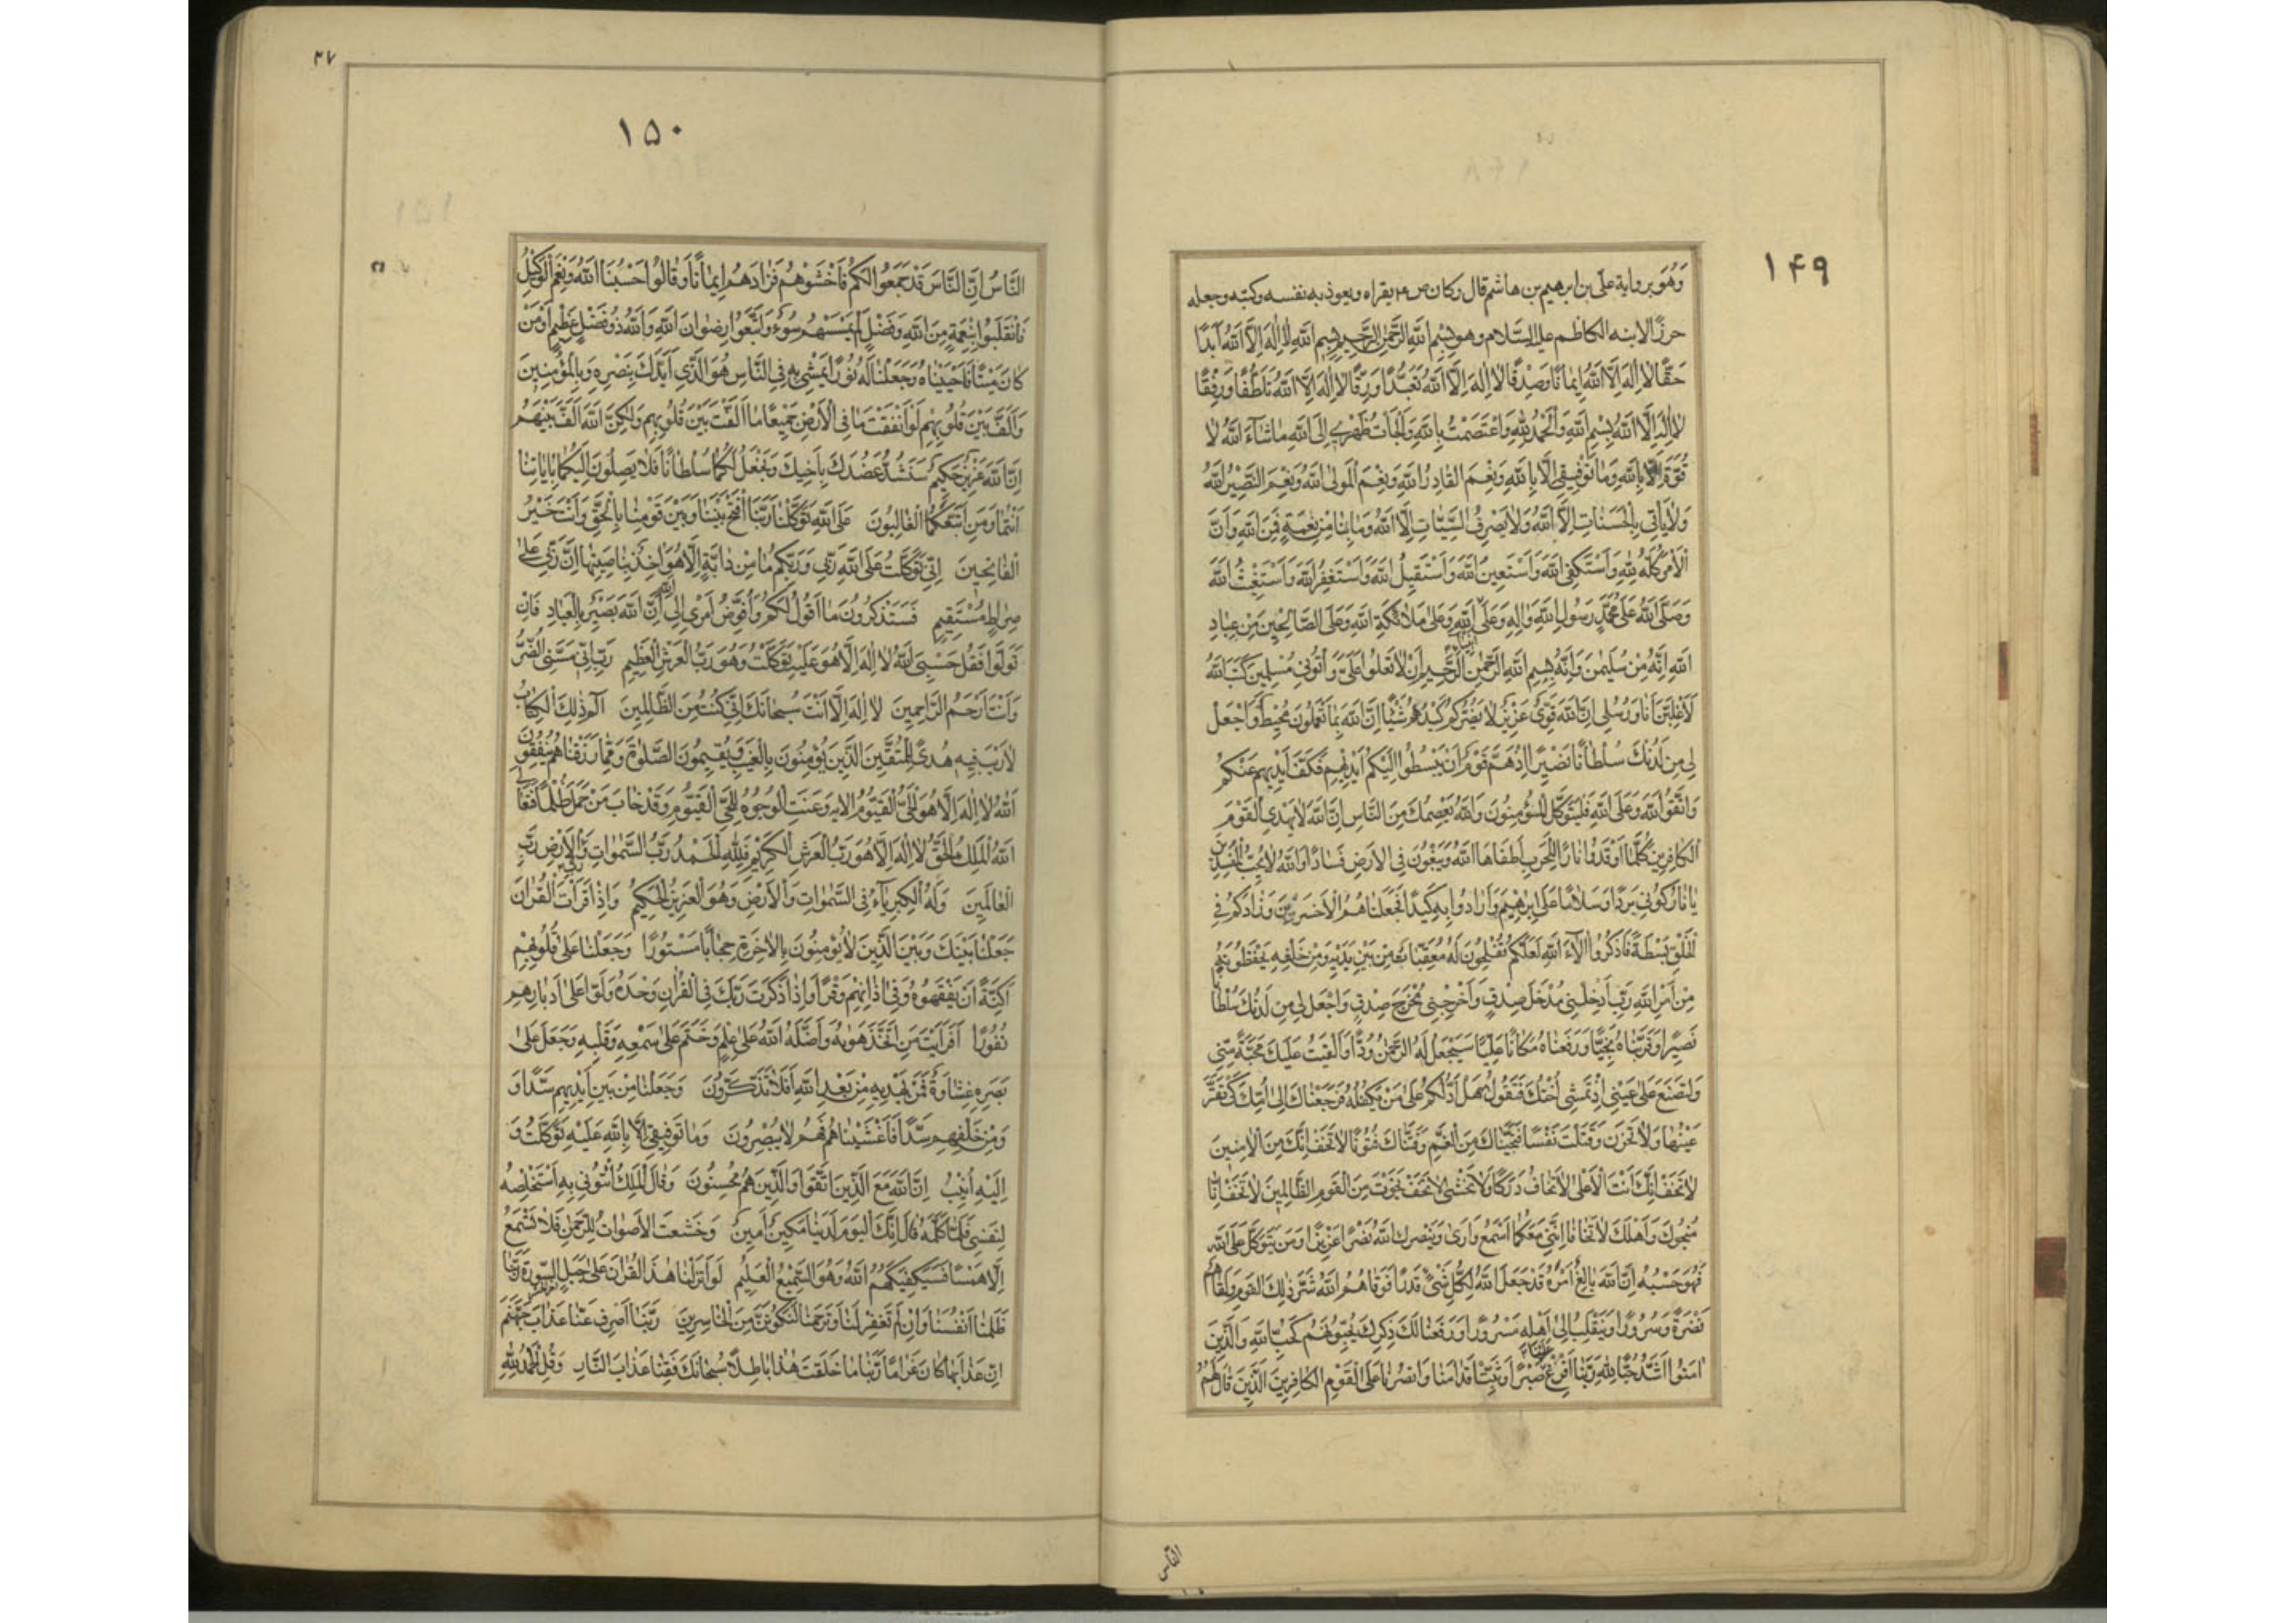 ١۴٩
وَهُوَ بروایة علی بن ابرهیم بن هاشم قال وکان ص ع یقراه ویعوذ به نفسه وکتبه وجعله
حرزًا لابنه الکاظم علیه السَّلام وهو بِسْمِ اللهِ الرَّحْمٰنِ الرَّحیمِ بِسْمِ اللهِ لا اِلٰهَ اِلَّا اللهُ اَبَدًا
حَقًّا لا اِلٰهَ اِلَّا اللهُ اِیمانًا وَصِدْقًا لا اِلٰهَ اِلَّا اللهُ تَعَبُّدًا وَرِقًّا لا اِلٰهَ اِلَّا اللهُ تَلَطُّفًا وَرِفْقًا
لا اِلٰهَ اِلَّا اللهُ بِسْمِ اللهِ وَالْحَمْدُ لِلّٰهِ وَاعْتَصَمْتُ بِاللهِ وَاَلْجَأْتُ ظَهْرِی اِلَی اللهِ ماشآءَ اللهُ لا
قُوَّةَ اِلَّا بِاللهِ وَمَا تَوْفِیقِی اِلَّا بِاللهِ وَنِعْمَ القادِرُ اللهُ وَنِعْمَ الْمَولیٰ اللهُ وَنِعْمَ النَّصِیرُ اللهُ
وَلا یَأْتِی بِالْحَسَناتِ اِلَّا اللهُ وَلا یَصْرِفُ السَّیِّئاتِ اِلَّا اللهُ وَمَا بِنَا مِنْ نِعْمَةٍ فَمِنَ اللهِ وَاَنَّ
الْاَمْرَ کُلَّهُ لِلّٰهِ وَاَسْتَکْفِی اللهَ وَاَسْتَعِینُ اللهَ وَاَسْتَقِیلُ اللهَ وَاَسْتَغْفِرُ اللهَ وَاَسْتَغِیثُ اللهَ
وَصَلَّی اللهُ عَلیٰ مُحَمَّدٍ رَسُولِ اللهِ وَاٰلِهِ وَعَلیٰ اَنْبِیاءِ اللهِ وَعَلیٰ مَلائِکَةِ اللهِ وَعَلَی الصَّالِحِینَ مِنْ عِبادِ
اللهِ اِنَّهُ مِنْ سُلَیْمٰنَ وَاِنَّهُ بِسْمِ اللهِ الرَّحْمٰنِ الرَّحیمِ اَنْ لا تَعْلُوا عَلَیَّ وَأْتُونِی مُسْلِمِینَ کَتَبَ اللهُ
لَاَغْلِبَنَّ اَنَا وَرُسُلِی اِنَّ اللهَ قَوِیٌّ عَزِیزٌ لا یَضُرُّکُمْ کَیْدُهُمْ شَیْئًا اِنَّ اللهَ بِمَا تَعْمَلُونَ مُحِیطٌ وَاجْعَلْ
لِی مِنْ لَدُنْكَ سُلْطانًا نَصِیرًا اِذْ هَمَّ قَوْمٌ اَنْ یَبْسُطُوا اِلَیْکُمْ اَیْدِیَهُمْ فَکَفَّ اَیْدِیَهُمْ عَنْکُمْ
وَاتَّقُوا اللهَ وَعَلَی اللهِ فَلْیَتَوَکَّلِ الْمُؤْمِنُونَ وَاللهُ یَعْصِمُكَ مِنَ النَّاسِ اِنَّ اللهَ لا یَهْدِی الْقَوْمَ
الکافِرِینَ کُلَّمَا اَوْقَدُوا نارًا لِلْحَرْبِ اَطْفَاَهَا اللهُ وَیَسْعَوْنَ فِی الْاَرْضِ فَسادًا وَاللهُ لا یُحِبُّ الْمُفْسِدِینَ
یا نارُ کُونِی بَرْدًا وَسَلامًا عَلیٰ اِبْرٰهِیمَ وَاَرادُوا بِهِ کَیْدًا فَجَعَلْناهُمُ الْاَخْسَرِینَ وَزادَکُمْ فِی
الْخَلْقِ بَسْطَةً فَاذْکُرُوا اٰلآءَ اللهِ لَعَلَّکُمْ تُفْلِحُونَ لَهُ مُعَقِّباتٌ مِنْ بَیْنِ یَدَیْهِ وَمِنْ خَلْفِهِ یَحْفَظُونَهُ
مِنْ اَمْرِ اللهِ رَبِّ اَدْخِلْنِی مُدْخَلَ صِدْقٍ وَاَخْرِجْنِی مُخْرَجَ صِدْقٍ وَاجْعَلْ لِی مِنْ لَدُنْكَ سُلْطانًا
نَصِیرًا وَقَرَّبْناهُ نَجِیًّا وَرَفَعْناهُ مَکانًا عَلِیًّا سَیَجْعَلُ لَهُمُ الرَّحْمٰنُ وُدًّا وَاَلْقَیْتُ عَلَیْكَ مَحَبَّةً مِنِّی
وَلِتُصْنَعَ عَلیٰ عَیْنِی اِذْ تَمْشِی اُخْتُكَ فَتَقُولُ هَلْ اَدُلُّکُمْ عَلیٰ مَنْ یَکْفُلُهُ فَرَجَعْناكَ اِلیٰ اُمِّكَ کَیْ تَقَرَّ
عَیْنُها وَلا تَحْزَنَ وَقَتَلْتَ نَفْسًا فَنَجَّیْناكَ مِنَ الْغَمِّ وَفَتَنَّاكَ فُتُونًا لا تَخَفْ اِنَّكَ مِنَ الْاٰمِنِینَ
لا تَخَفْ اِنَّكَ اَنْتَ الْاَعْلیٰ لا تَخافُ دَرَکًا وَلا تَخْشیٰ لا تَخَفْ نَجَوْتَ مِنَ الْقَومِ الظَّالِمِینَ لا تَخَفْ اِنَّا
مُنَجُّوكَ وَاَهْلَكَ لا تَخافا اِنَّنِی مَعَکُمَا اَسْمَعُ وَاَریٰ وَیَنْصُرَكَ اللهُ نَصْرًا عَزِیزًا وَمَنْ یَتَوَکَّلْ عَلَی اللهِ
فَهُوَ حَسْبُهُ اِنَّ اللهَ بالِغُ اَمْرِهِ قَدْ جَعَلَ اللهُ لِکُلِّ شَیْءٍ قَدْرًا فَوَقاهُمُ اللهُ شَرَّ ذٰلِكَ الْیَومِ وَلَقّاهُمْ
نَضْرَةً وَسُرُورًا وَیَنْقَلِبُ اِلیٰ اَهْلِهِ مَسْرُورًا وَرَفَعْنا لَكَ ذِکْرَكَ یُحِبُّونَهُمْ کَحُبِّ اللهِ وَالَّذِینَ
اٰمَنُوا اَشَدُّ حُبًّا لِلّٰهِ رَبَّنَا اَفْرِغْ عَلَیْنا صَبْرًا وَثَبِّتْ اَقْدامَنَا وَانْصُرْنَا عَلَی الْقَوْمِ الکافِرِینَ الَّذِینَ قالَ لَهُمُ
الناس
١۵٠
النَّاسُ اِنَّ النَّاسَ قَدْ جَمَعُوا لَکُمْ فَاخْشَوْهُمْ فَزَادَهُمْ اِیمانًا وَقالُوا حَسْبُنَا اللهُ وَنِعْمَ الْوَکِیلُ
فَانْقَلَبُوا بِنِعْمَةٍ مِنَ اللهِ وَفَضْلٍ لَمْ یَمْسَسْهُمْ سُوءٌ وَاتَّبَعُوا رِضْوانَ اللهِ وَاللهُ ذُو فَضْلٍ عَظِیمٍ اَوَمَنْ
کانَ مَیْتًا فَاَحْیَیْناهُ وَجَعَلْنا لَهُ نُورًا یَمْشِی بِهِ فِی النَّاسِ هُوَ الَّذِی اَیَّدَكَ بِنَصْرِهِ وَبِالْمُؤْمِنِینَ
وَاَلَّفَ بَیْنَ قُلُوبِهِمْ لَوْ اَنْفَقْتَ مَا فِی الْاَرْضِ جَمِیعًا مَا اَلَّفْتَ بَیْنَ قُلُوبِهِمْ وَلٰکِنَّ اللهَ اَلَّفَ بَیْنَهُمْ
اِنَّ اللهَ عَزِیزٌ حَکِیمٌ سَنَشُدُّ عَضُدَكَ بِاَخِیكَ وَنَجْعَلُ لَکُمَا سُلْطانًا فَلا یَصِلُونَ اِلَیْکُمَا بِاٰیاتِنا
اَنْتُمَا وَمَنِ اتَّبَعَکُمَا الْغالِبُونَ عَلَی اللهِ تَوَکَّلْنَا رَبَّنَا افْتَحْ بَیْنَنَا وَبَیْنَ قَوْمِنَا بِالْحَقِّ وَاَنْتَ خَیْرُ
الْفاتِحِینَ اِنِّی تَوَکَّلْتُ عَلَی اللهِ رَبِّی وَرَبِّکُمْ مَا مِنْ دابَّةٍ اِلَّا هُوَ اٰخِذٌ بِناصِیَتِهَا اِنَّ رَبِّی عَلیٰ
صِراطٍ مُسْتَقِیمٍ فَسَتَذْکُرُونَ مَا اَقُولُ لَکُمْ وَاُفَوِّضُ اَمْرِی اِلَی اللهِ اِنَّ اللهَ بَصِیرٌ بِالْعِبادِ فَاِنْ
تَوَلَّوْا فَقُلْ حَسْبِیَ اللهُ لا اِلٰهَ اِلَّا هُوَ عَلَیْهِ تَوَکَّلْتُ وَهُوَ رَبُّ الْعَرْشِ الْعَظِیمِ رَبِّ اِنِّی مَسَّنِیَ الضُّرُّ
وَاَنْتَ اَرْحَمُ الرَّاحِمِینَ لا اِلٰهَ اِلَّا اَنْتَ سُبْحانَكَ اِنِّی کُنْتُ مِنَ الظَّالِمِینَ الٓمٓ ذٰلِكَ الْکِتابُ
لا رَیْبَ فِیهِ هُدًی لِلْمُتَّقِینَ الَّذِینَ یُؤْمِنُونَ بِالْغَیْبِ وَیُقِیمُونَ الصَّلٰوةَ وَمِمَّا رَزَقْناهُمْ یُنْفِقُونَ
اَللهُ لا اِلٰهَ اِلَّا هُوَ الْحَیُّ الْقَیُّومُ الایه وَعَنَتِ الْوُجُوهُ لِلْحَیِّ الْقَیُّومِ وَقَدْ خابَ مَنْ حَمَلَ ظُلْمًا فَتَعالَی
اللهُ الْمَلِكُ الْحَقُّ لا اِلٰهَ اِلَّا هُوَ رَبُّ الْعَرْشِ الْکَرِیمِ فَلِلّٰهِ الْحَمْدُ رَبِّ السَّمٰواتِ وَرَبِّ الْاَرْضِ رَبِّ
الْعالَمِینَ وَلَهُ الْکِبْرِیآءُ فِی السَّمٰواتِ وَالْاَرْضِ وَهُوَ الْعَزِیزُ الْحَکِیمُ وَاِذَا قَرَأْتَ الْقُرْاٰنَ
جَعَلْنَا بَیْنَكَ وَبَیْنَ الَّذِینَ لا یُؤْمِنُونَ بِالْاٰخِرَةِ حِجابًا مَسْتُورًا وَجَعَلْنَا عَلیٰ قُلُوبِهِمْ
اَکِنَّةً اَنْ یَفْقَهُوهُ وَفِی اٰذانِهِمْ وَقْرًا وَاِذَا ذَکَرْتَ رَبَّكَ فِی الْقُرْاٰنِ وَحْدَهُ وَلَّوْا عَلیٰ اَدْبارِهِمْ
نُفُورًا اَفَرَاَیْتَ مَنِ اتَّخَذَ اِلٰهَهُ هَوٰیهُ وَاَضَلَّهُ اللهُ عَلیٰ عِلْمٍ وَخَتَمَ عَلیٰ سَمْعِهِ وَقَلْبِهِ وَجَعَلَ عَلیٰ
بَصَرِهِ غِشاوَةً فَمَنْ یَهْدِیهِ مِنْ بَعْدِ اللهِ اَفَلا تَذَکَّرُونَ وَجَعَلْنَا مِنْ بَیْنِ اَیْدِیهِمْ سَدًّا وَ
وَمِنْ خَلْفِهِمْ سَدًّا فَاَغْشَیْناهُمْ فَهُمْ لا یُبْصِرُونَ وَمَا تَوْفِیقِی اِلَّا بِاللهِ عَلَیْهِ تَوَکَّلْتُ وَ
اِلَیْهِ اُنِیبُ اِنَّ اللهَ مَعَ الَّذِینَ اتَّقَوْا وَالَّذِینَ هُمْ مُحْسِنُونَ وَقالَ الْمَلِكُ ائْتُونِی بِهِ اَسْتَخْلِصْهُ
لِنَفْسِی فَلَمَّا کَلَّمَهُ قالَ اِنَّكَ الْیَوْمَ لَدَیْنَا مَکِینٌ اَمِینٌ وَخَشَعَتِ الْاَصْواتُ لِلرَّحْمٰنِ فَلا تَسْمَعُ
اِلَّا هَمْسًا فَسَیَکْفِیکَهُمُ اللهُ وَهُوَ السَّمِیعُ الْعَلِیمُ لَوْ اَنْزَلْنَا هٰذَا الْقُرْاٰنَ عَلیٰ جَبَلٍ السورة رَبَّنَا
ظَلَمْنَا اَنْفُسَنَا وَاِنْ لَمْ تَغْفِرْ لَنَا وَتَرْحَمْنَا لَنَکُونَنَّ مِنَ الْخاسِرِینَ رَبَّنَا اصْرِفْ عَنَّا عَذابَ جَهَنَّمَ
اِنَّ عَذابَهَا کانَ غَرامًا رَبَّنَا مَا خَلَقْتَ هٰذَا باطِلًا سُبْحانَكَ فَقِنَا عَذابَ النَّارِ وَقُلِ الْحَمْدُ لِلّٰهِ